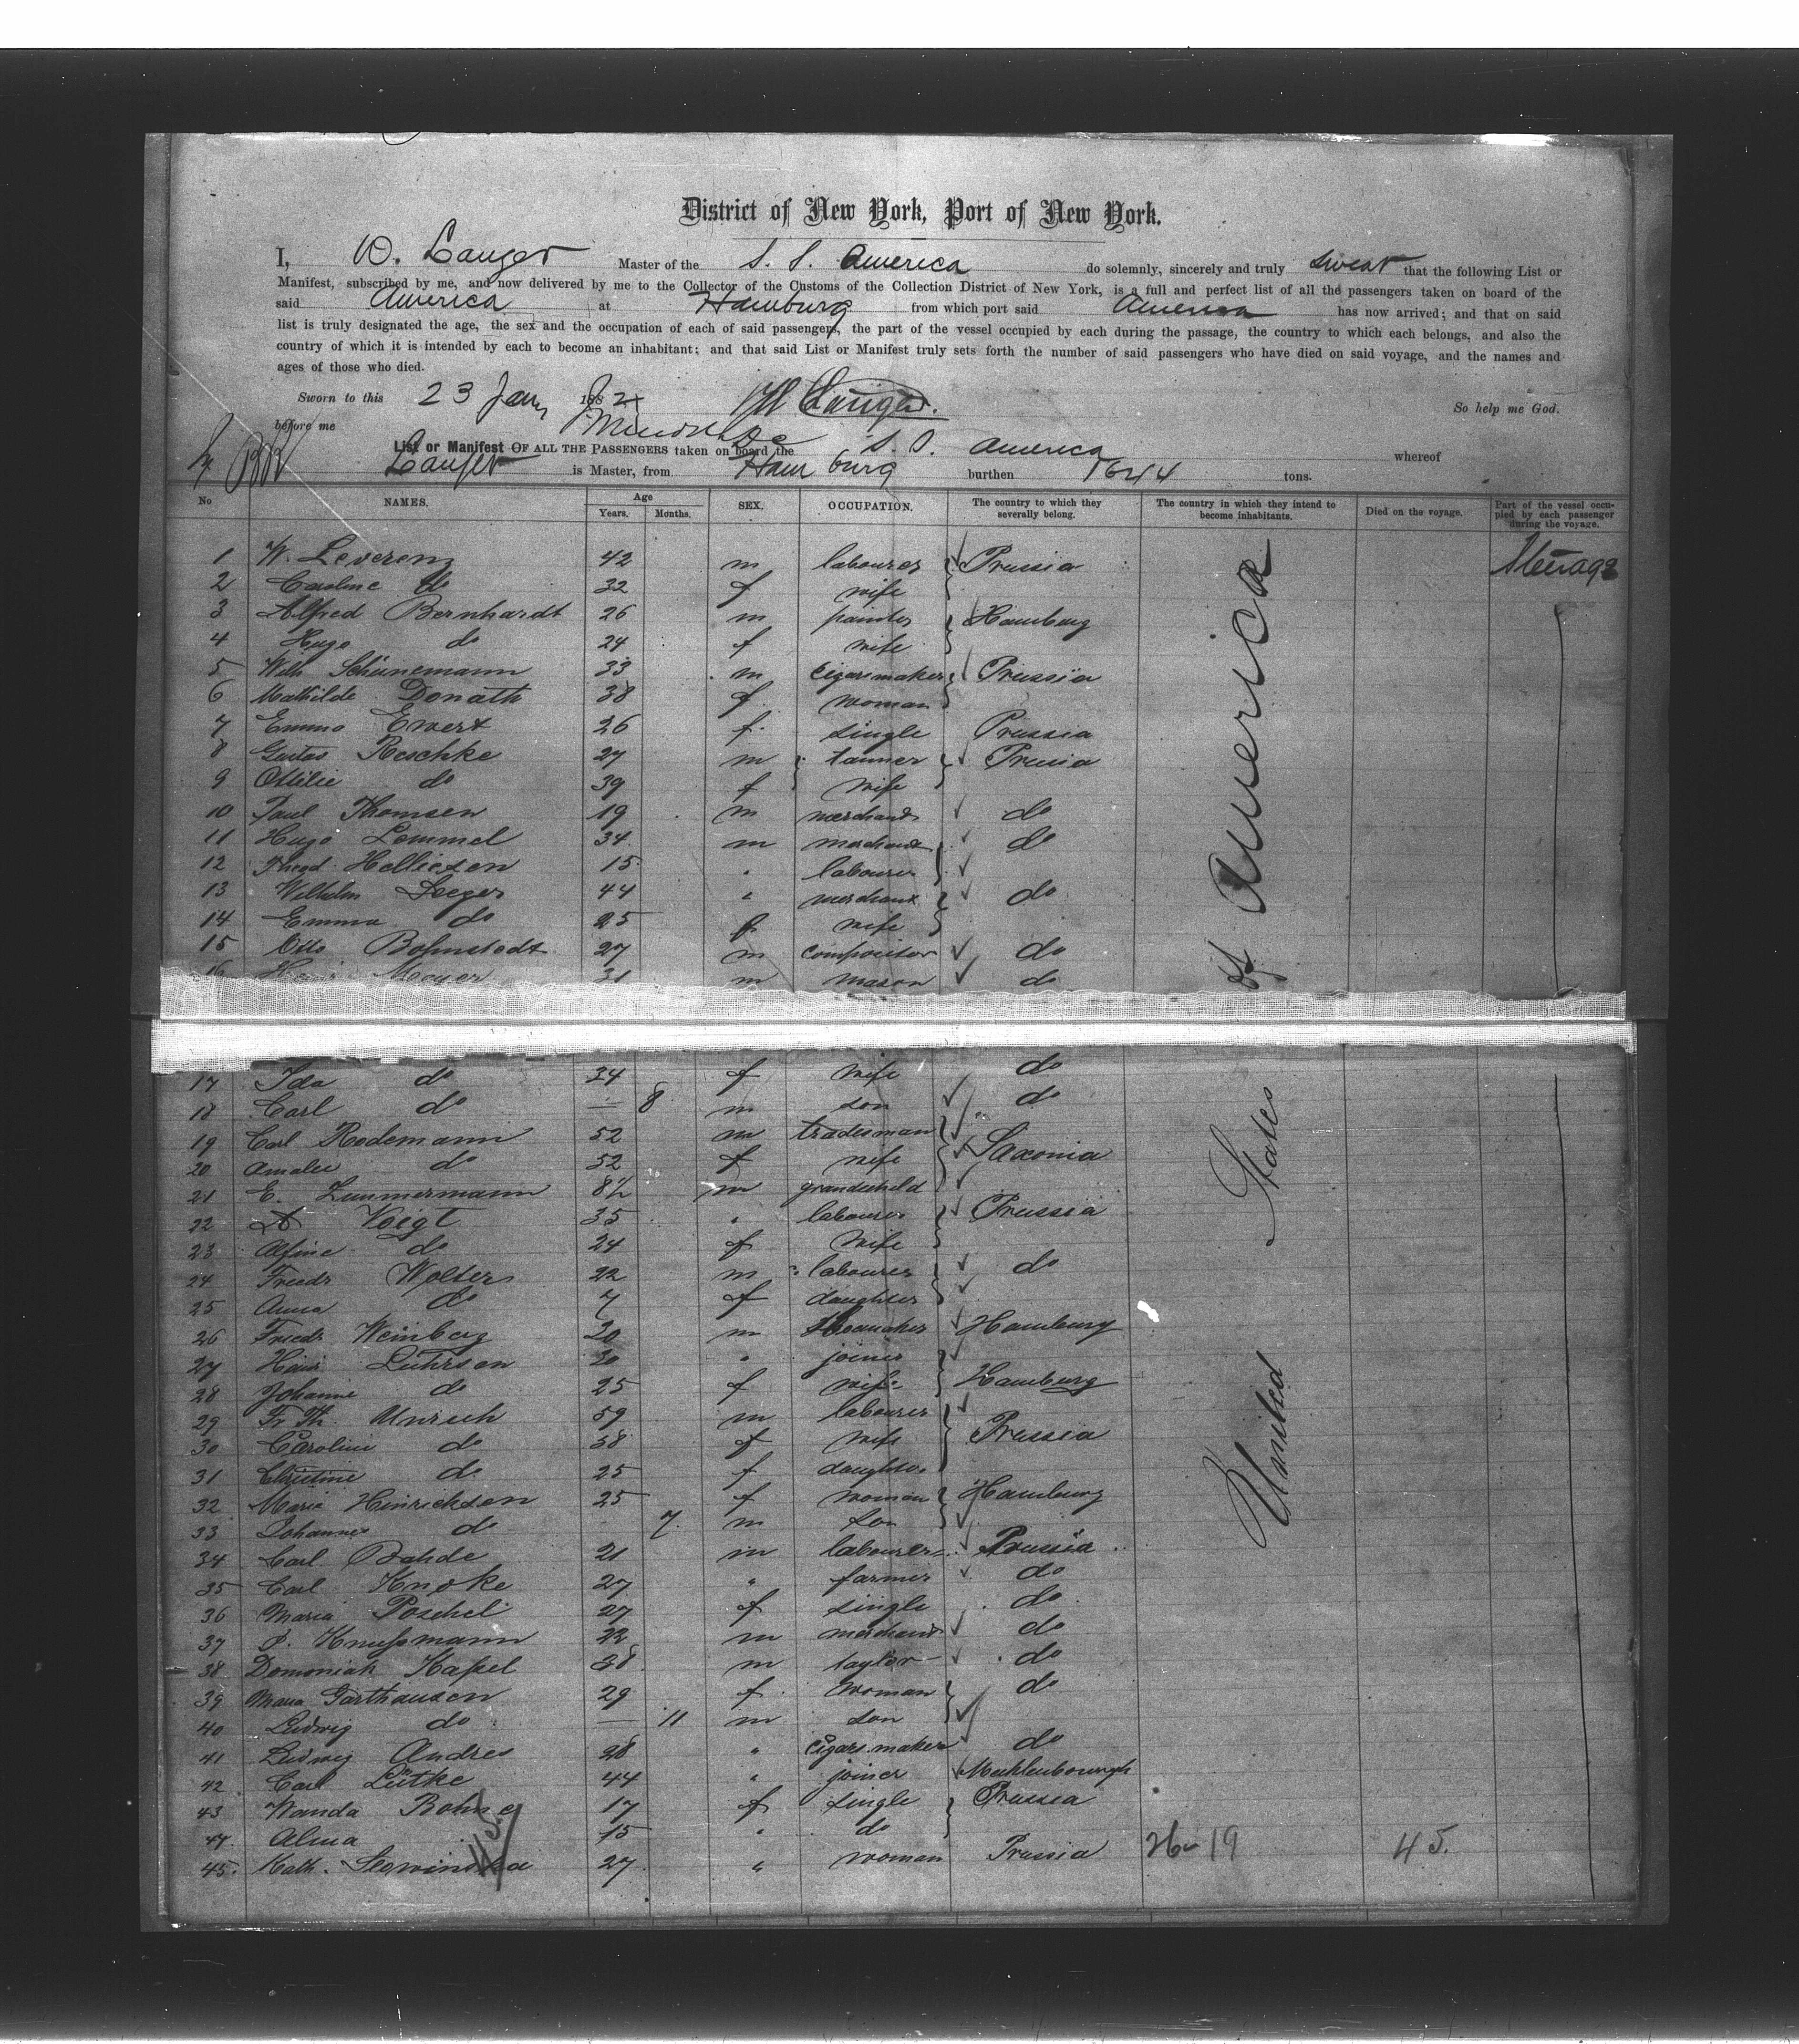 District of New York, Port of New York.
I, W. Langer Master of the S. S. America do solemnly, sincerely and truly swear that the following List or
Manifest, subscribed by me, and now delivered by me to the Collector of the Customs of the Collection District of New York, is a full and perfect list of all the passengers taken on board of the
said America at Hamburg from which port said America has now arrived; and that on said
list is truly designated the age, the sex and the occupation of each of said passengers, the part of the vessel occupied by each during the passage, the country to which each belongs, and also the
country of which it is intended by each to become an inhabitant; and that said List or Manifest truly sets forth the number of said passengers who have died on said voyage, and the names and
ages of those who died.
Sworn to this 23 Jany 1882 W Langer. So help me God.
before me
List or Manifest OF ALL THE PASSENGERS taken on board the S. S. America whereof
Langer is Master, from Hamburg burthen 1644 tons.
No NAMES. Age Years. Months. SEX. OCCUPATION. The country to which they severally belong. The country in which they intend to become inhabitants. Died on the voyage. Part of the vessel occupied by each passenger during the voyage.
1 W. Leverenz 42 m labourer Prussia Steerage
2 Caroline do 32 f wife
3 Alfred Bernhardt 26 m painter Hamburg
4 Hugo do 24 f wife
5 Wilh Schünemann 33 m Cigarsmaker Prussia
6 Mathilde Donath 38 f woman
7 Emma Ewert 26 f single Prussia
8 Gustav Reschke 27 m tanner Prussia
9 Ottilie do 39 f wife
10 Paul Thomsen 19 m merchand do
11 Hugo Lemmel 34 m merchand do
12 Helliesen 15 " labourer
13 Wilhelm Seeger 44 " merchant do
14 Emma do 25 f wife
15 Otto Bohnstedt 27 m compositor do
16 Meyer 31 m mason do
17 Ida do 34 f wife do
18 Carl do — 8 m son do
19 Carl Rodemann 52 m tradesman
20 Amalie do 52 f wife Saxonia
21 E. Zimmermann 8½ m grandchild
22 A Voigt 35 " labourer Prussia
23 Alfine do 24 f wife
24 Friedr Wolters 22 m labourer do
25 Anna do 7 f daughter
26 Friedr Weinberg 20 m Shoemaker Hamburg
27 Heinr Lührsen 30 " joiner
28 Johanne do 25 f wife Hamburg
29 Fr Th. Unruh 59 m labourer
30 Caroline do 58 f wife Prussia
31 Christine do 25 f daughter
32 Marie Hinrichsen 25 f woman Hamburg
33 Johannes do 7 m son
34 Carl Bahde 21 m labourer Prussia
35 Carl Knoke 27 " farmer do
36 Maria Poschel 27 f single do
37 P. Knußmann 22 m merchand do
38 Domoniak Kapel 38 m taylor do
39 Maria Garthausen 29 f woman do
40 Ludwig do — 11 m son
41 Ludwig Andres 28 " cigars maker do
42 Carl Lütke 44 " joiner Mecklenbourgh
43 Wanda Bohne 17 f single Prussia
44 Alma 15 " do
45. Kath. 27 " woman Prussia 19 45.
United States of America